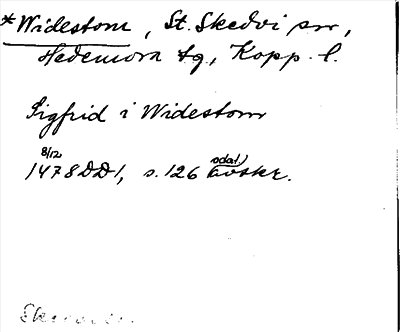 *Widestom, St. Skedvi sn,
Hedemora tg, Kopp. l.
Sigfrid i Widestom
8/12
1478 DD 1, s. 126 avskr.